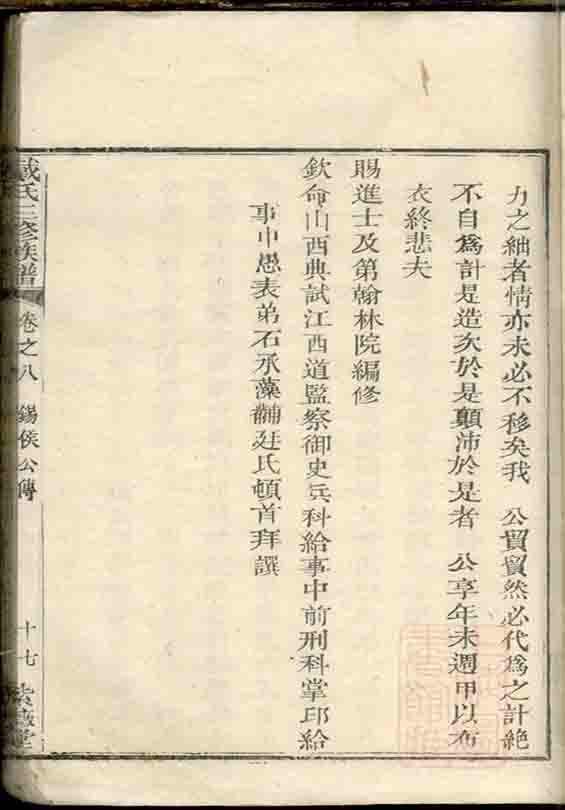 力之絀者情亦未必不移矣我　公貿貿然必代爲之計絕
不自爲計是造次於是顛沛於是者　公享年未週甲以布
衣終悲夫
賜進士及第翰林院編修
欽命山西典試江西道監察御史兵科給事中前刑科掌印給
事中愚表弟石承藻黼廷氏頓首拜譔
戴氏三修族譜
卷之八　錫侯公傳
十七